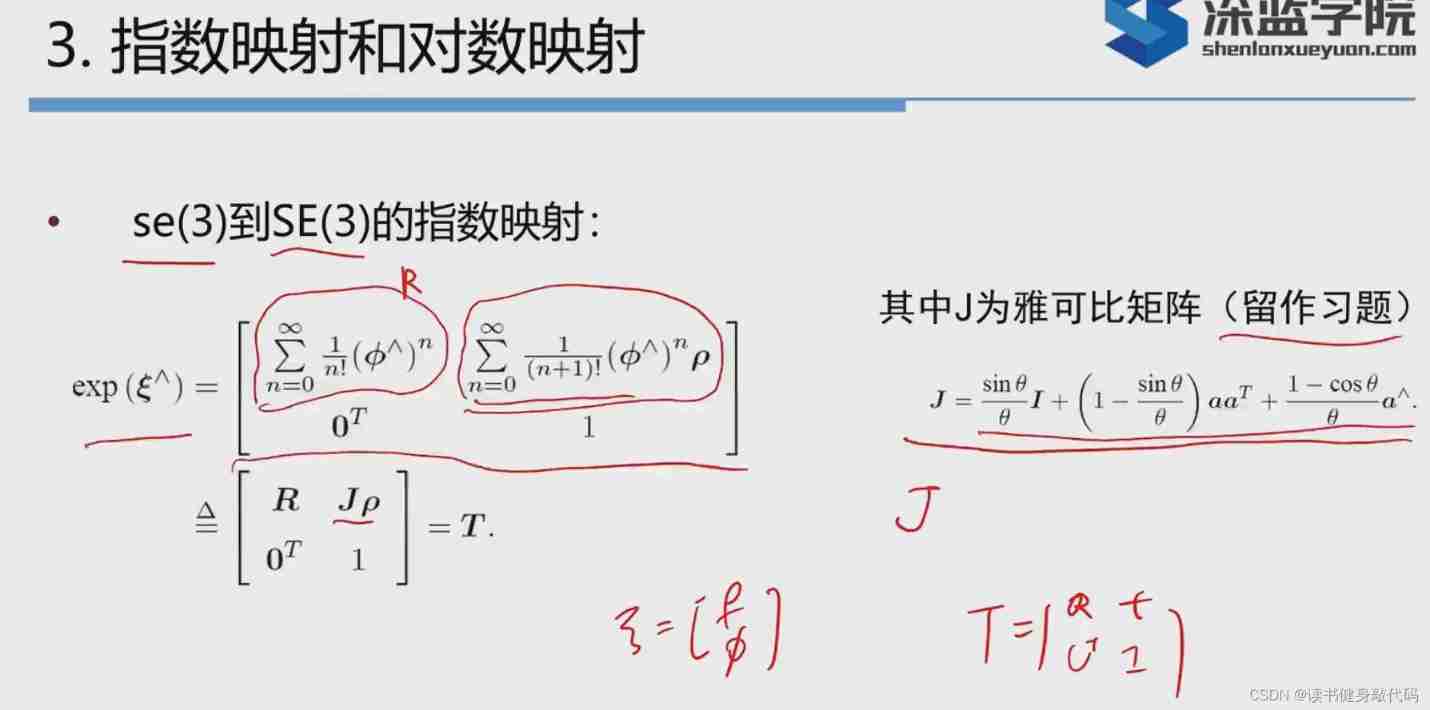 3. 指数映射和对数映射
深蓝学院
shenlanxueyuan.com
• se(3)到SE(3)的指数映射：
R
exp (ξ^) = [ ∑_{n=0}^{∞} 1/n! (ϕ^)^n   ∑_{n=0}^{∞} 1/(n+1)! (ϕ^)^n ρ
0^T   1 ]
≜ [ R   Jρ
0^T   1 ] = T.
其中J为雅可比矩阵（留作习题）
J = sin θ/θ I + (1 − sin θ/θ) aa^T + 1 − cos θ/θ a^.
J
ξ = [ρ
ϕ]
T = [R t
0^T 1]
CSDN @读书健身敲代码